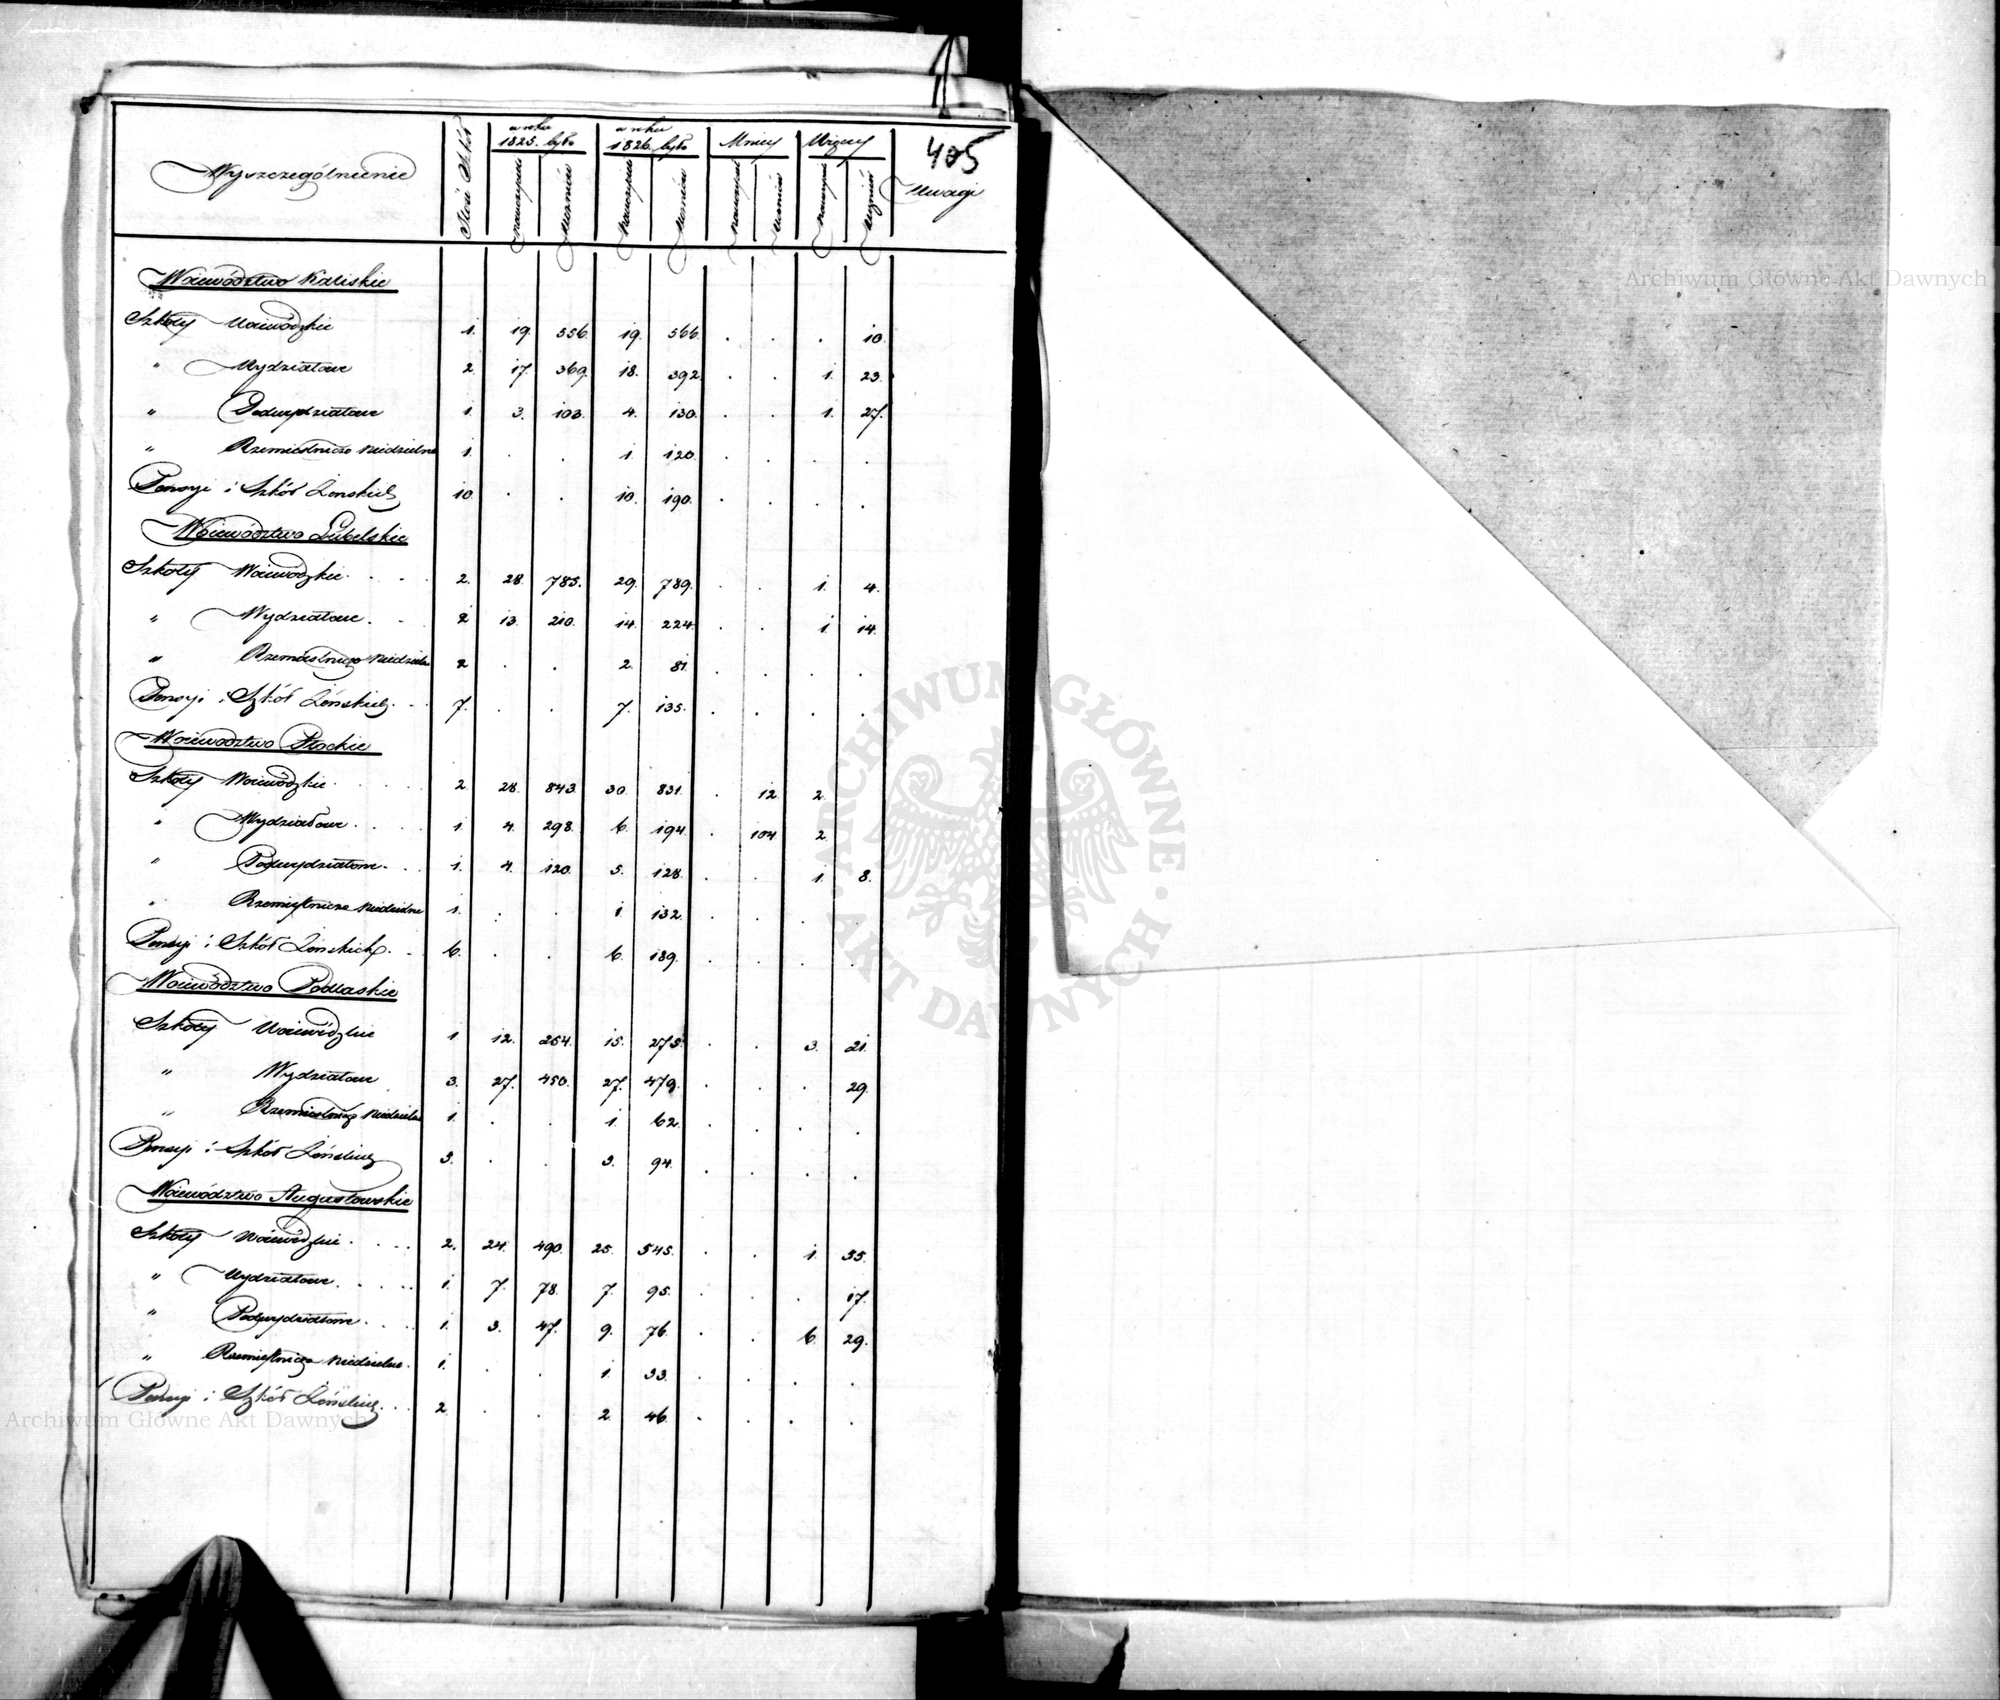 405
Wyszczególnienie Ilość Szkół w roku 1825. było w roku 1826. było Mniej Więcej Uwagi
Nauczycieli Uczniów Nauczycieli Uczniów Nauczycieli Uczniów Nauczycieli Uczniów
Województwo Kaliskie
Szkoły Woiewódzkie 1. 19. 556. 19. 566. . . . 10.
" Wydziałowe 2. 17. 369. 18. 392. . . 1. 23.
" Podwydziałowe 1. 3. 103. 4. 130. . . 1. 27.
" Rzemieślnicze Niedzielne 1. . . 1. 120. . . . .
Pensyi i Szkół Żeńskich 10. . . 10. 190. . . . .
Województwo Lubelskie
Szkoły Woiewódzkie. 2. 28. 785. 29. 789. . . 1. 4.
" Wydziałowe. 2 13. 210. 14. 224. . . 1. 14.
" Rzemieślnicze Niedzielne 2 . . 2. 81. . . . .
Pensyi i Szkół Żeńskich. 7. . . 7. 135. . . . .
Województwo Płockie
Szkoły Woiewódzkie. 2. 28. 843. 30. 831. . 12. 2.
" Wydziałowe. 1. 4. 298. 6. 194. . 104 2.
" Podwydziałowe. 1. 4. 120. 5. 128. . . 1. 8.
" Rzemieślnicze Niedzielne 1. . . 1. 132. . . . .
Pensyi i Szkół Żeńskich. 6. . . 6. 189. . . . .
Województwo Podlaskie
Szkoły Woiewódzkie 1 12. 254. 15. 275. . . 3. 21.
" Wydziałowe 3. 27. 450. 27. 479. . . . 29.
" Rzemieślnicze Niedzielne 1. . . 1. 62. . . . .
Pensyi i Szkół Żeńskich 3. . . 3. 94. . . . .
Województwo Augustowskie
Szkoły Woiewódzkie. 2. 24. 490. 25. 545. . . 1. 55.
" Wydziałowe. 1. 7. 78. 7. 95. . . . 17.
" Podwydziałowe. 1. 3. 47. 9. 76. . . 6. 29.
" Rzemieślnicze Niedzielne. 1. . . 1. 33. . . . .
Pensyi i Szkół Żeńskich. 2. . . 2. 46. . . . .
Archiwum Główne Akt Dawnych
Archiwum Główne Akt Dawnych
ARCHIWUM GŁÓWNE · AKT DAWNYCH ·